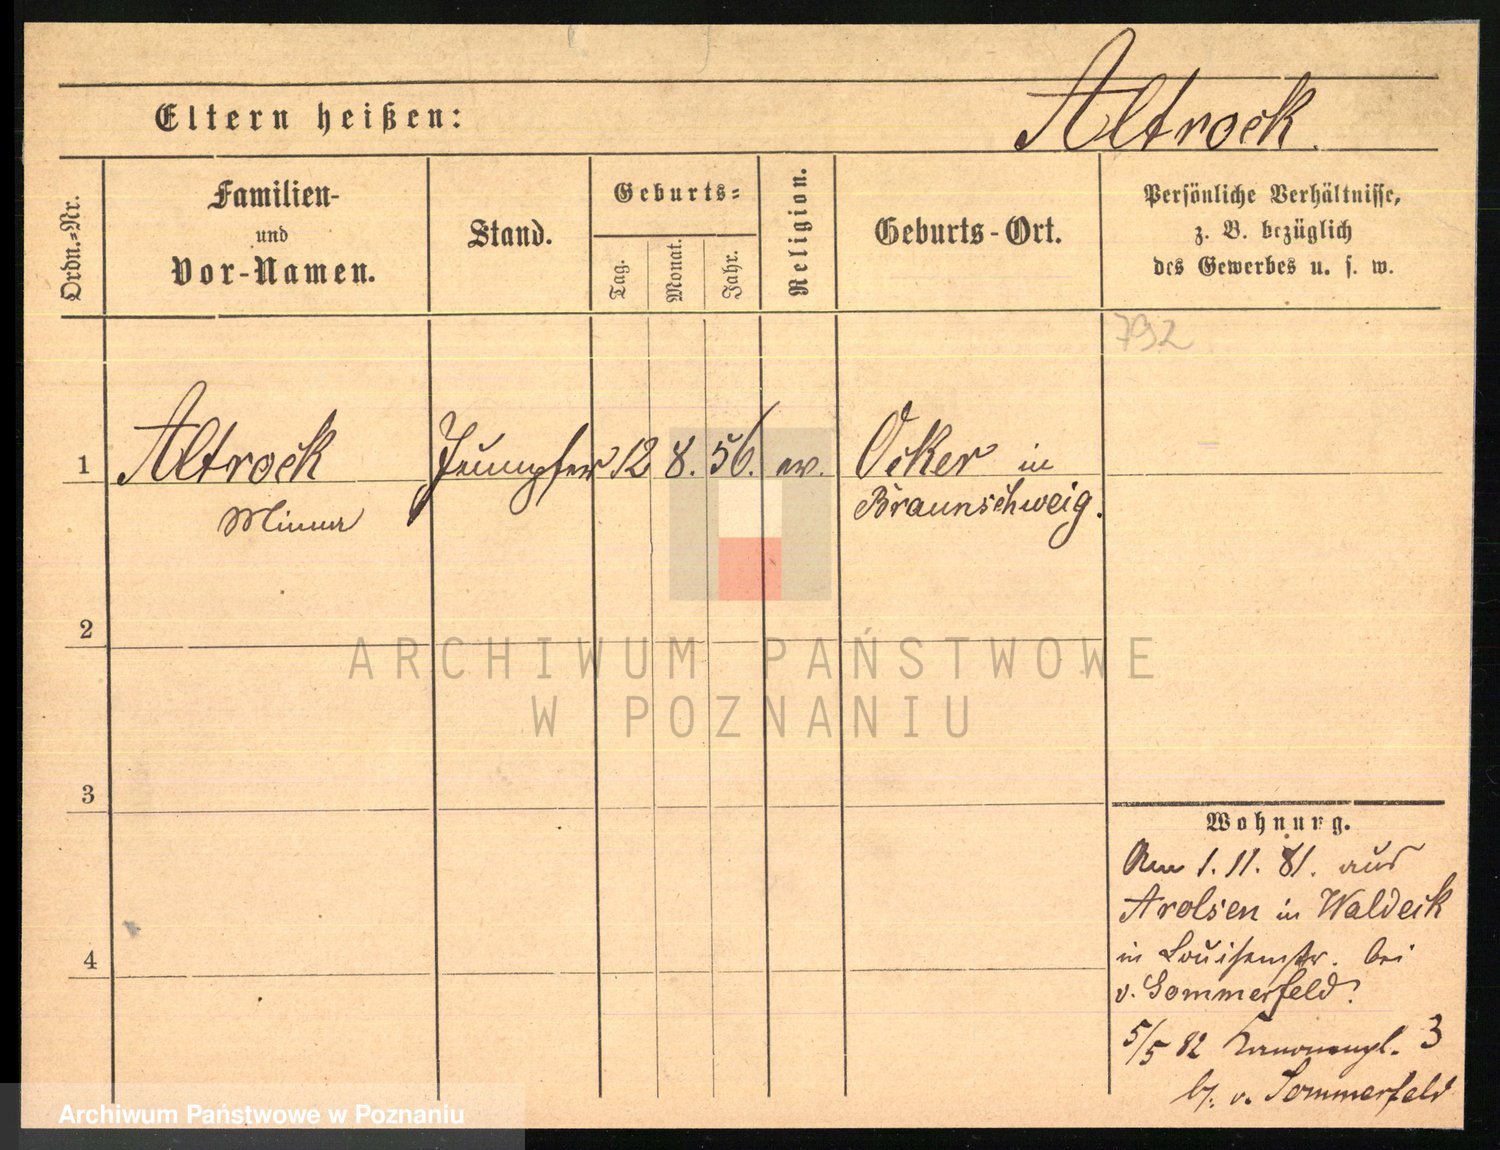 Altrock.
Eltern heißen:
Ordn.=Nr.
Familien-
und
Vor-Namen.
Stand.
Geburts=
Tag.
Monat.
Jahr.
Religion.
Geburts-Ort.
Persönliche Verhältnisse,
z. B. bezüglich
des Gewerbes u. s. w.
792
1 Altrock Jungfer 12 8. 56. ev. Ocker in
Minna Braunschweig.
2
3
4
Wohnung.
Am 1. 11. 81. aus
Arolsen in Waldeck
in Louisenstr. bei
v. Sommerfeld.
5/5 82 Kanonenpl. 3
b. v. Sommerfeld
ARCHIWUM PAŃSTWOWE
W POZNANIU
Archiwum Państwowe w Poznaniu